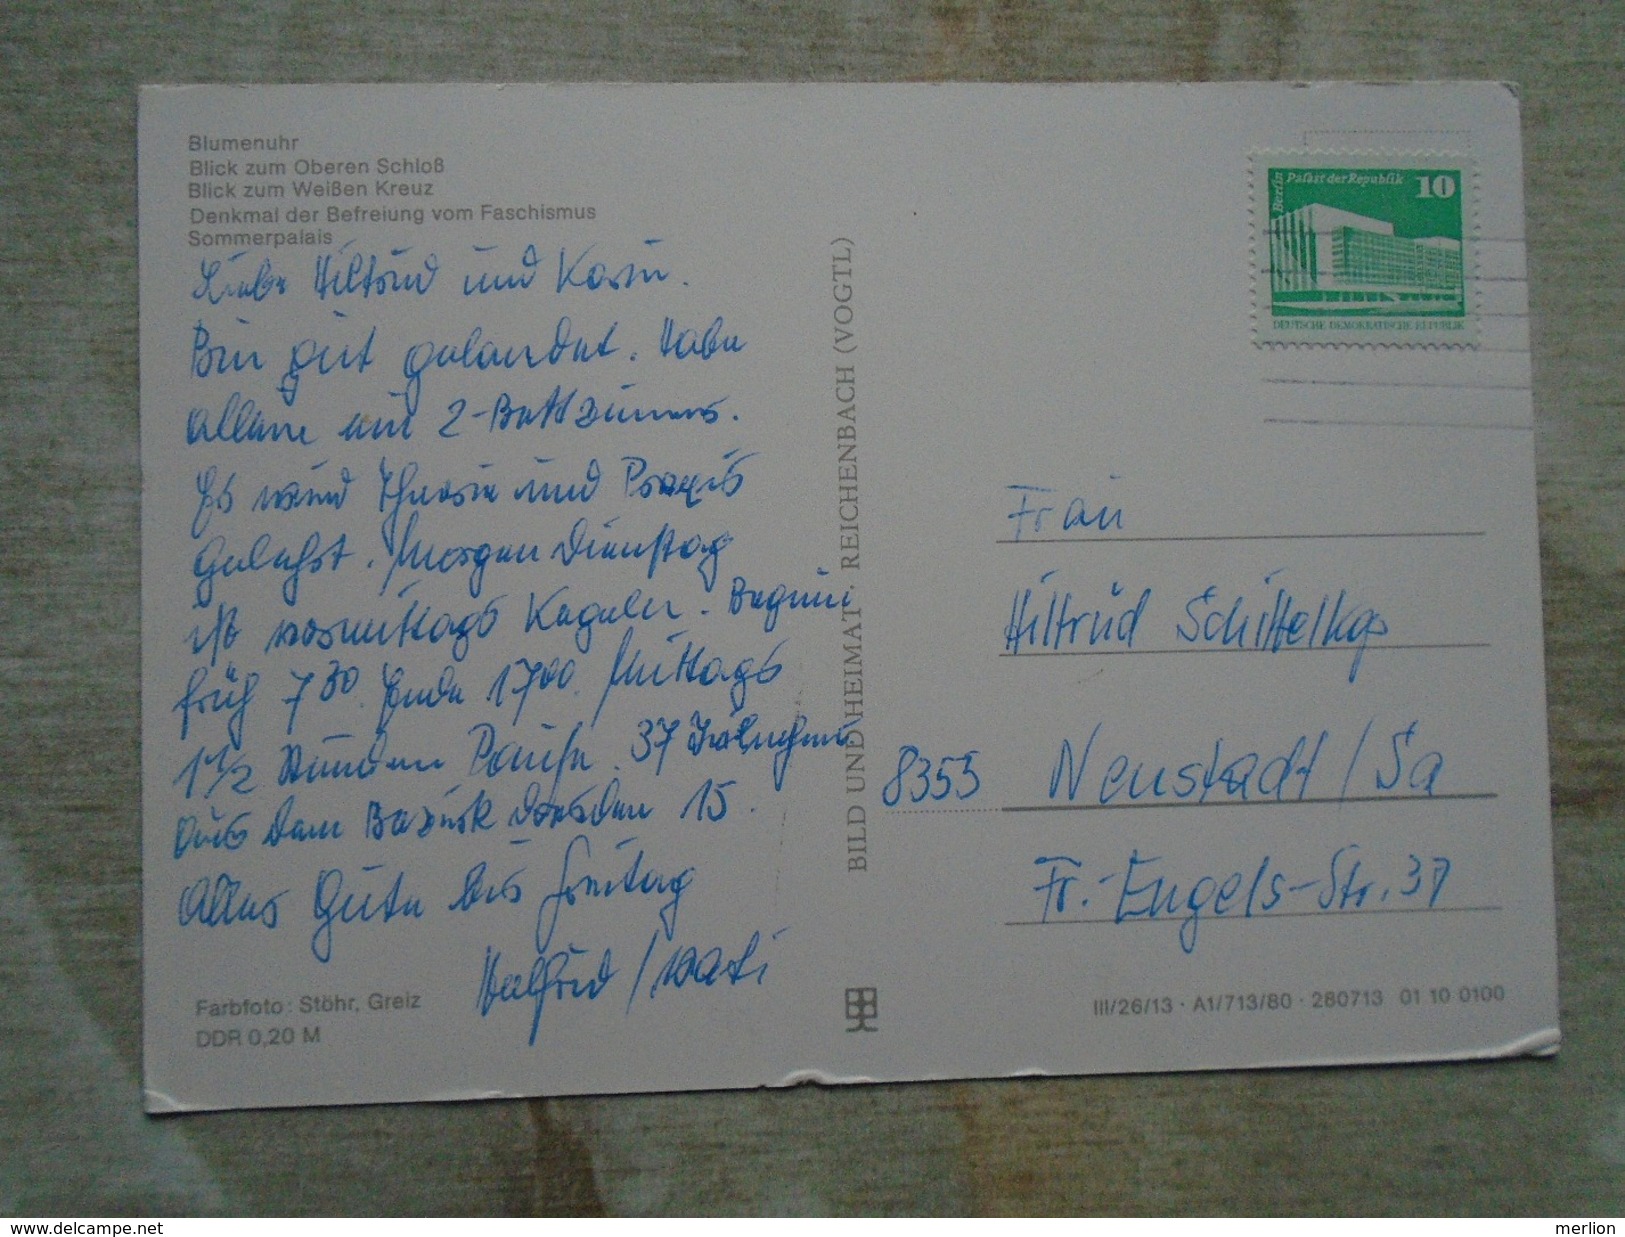 Blumenuhr
Blick zum Oberen Schloß
Blick zum Weißen Kreuz
Denkmal der Befreiung vom Faschismus
Sommerpalais
Liebe Hiltrud und Karin.
Bin gut gelandet. Habe
allein ein 2-Bettzimmer.
Es wird Theorie und Praxis
gelehrt. Morgen Dienstag
ist vormittags Kegeln. Beginn
früh 7 30. Ende 1700. Mittags
1 1/2 Stunden Pause. 37 Teilnehmer
aus dem Bezirk Dresden 15.
Alles Gute bis Freitag
Farbfoto: Stöhr, Greiz
DDR 0,20 M
BILD UND HEIMAT · REICHENBACH (VOGTL)
Berlin
Palast der Republik
10
DEUTSCHE DEMOKRATISCHE REPUBLIK
Frau
Hiltrud
8355 Neustadt / Sa
Fr.-Engels-Str. 37
III/26/13 · A1/713/80 · 280713 01 10 0100
www.delcampe.net
merlion